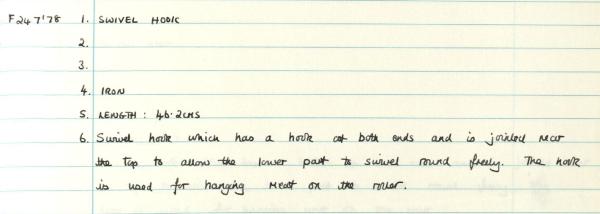 F247'78 1. SWIVEL HOOK
2.
3.
4. IRON
5. LENGTH : 46.2CMS
6. Swivel hook which has a hook at both ends and is jointed near
the top to allow the lower part to swivel round freely. The hook
is used for hanging meat on the roller.